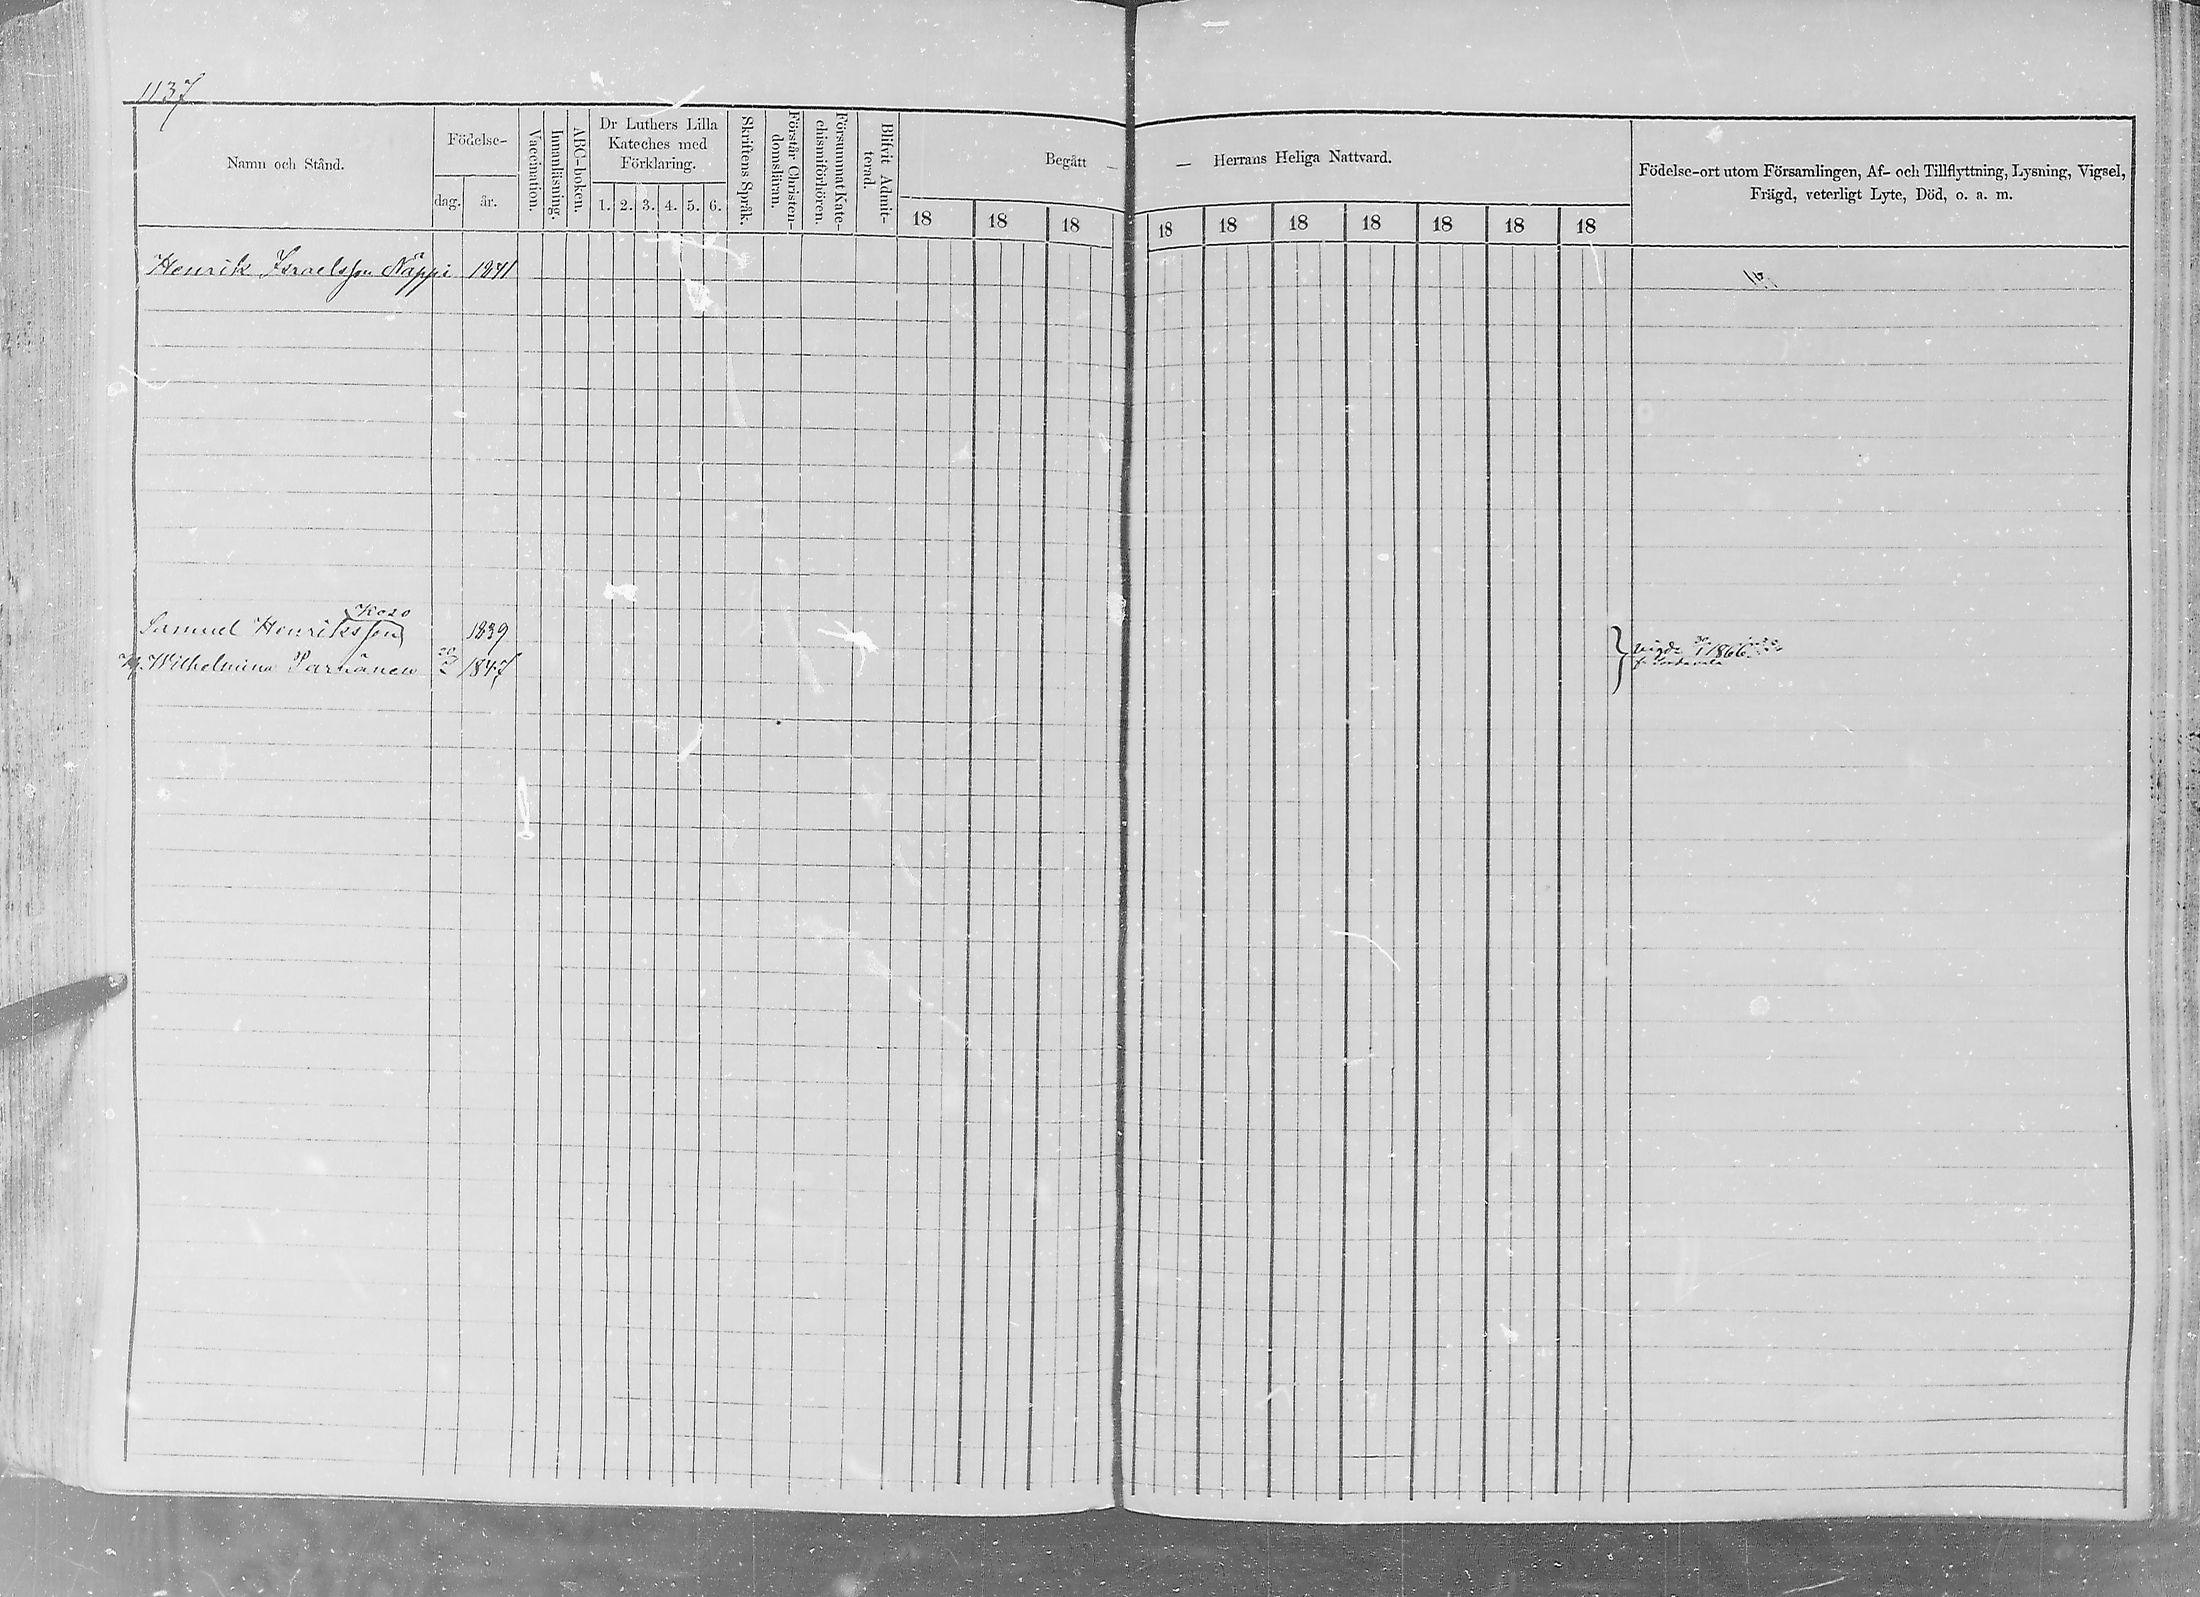 1137
Namn och Stånd.
Födelse-
dag.
år.
Vaccination.
Innanläsning.
ABC-boken.
Dr Luthers Lilla
Kateches med
Förklaring.
1. 2. 3. 4. 5. 6.
Skriftens Språk.
Förstår Christen-
domsläran.
Försummat Kate-
chismiförhören.
Blifvit Admit-
terad.
Begått —
— Herrans Heliga Nattvard.
18 18 18 18 18 18 18 18 18 18
Födelse-ort utom Församlingen, Af- och Tillflyttning, Lysning, Vigsel,
Frägd, veterligt Lyte, Död, o. a. m.
Henrik Israelsson Näppi 1841
Koso
Samuel Henriksson 1839
vigde 1866
Wilhelmina Parnänen 20 1847